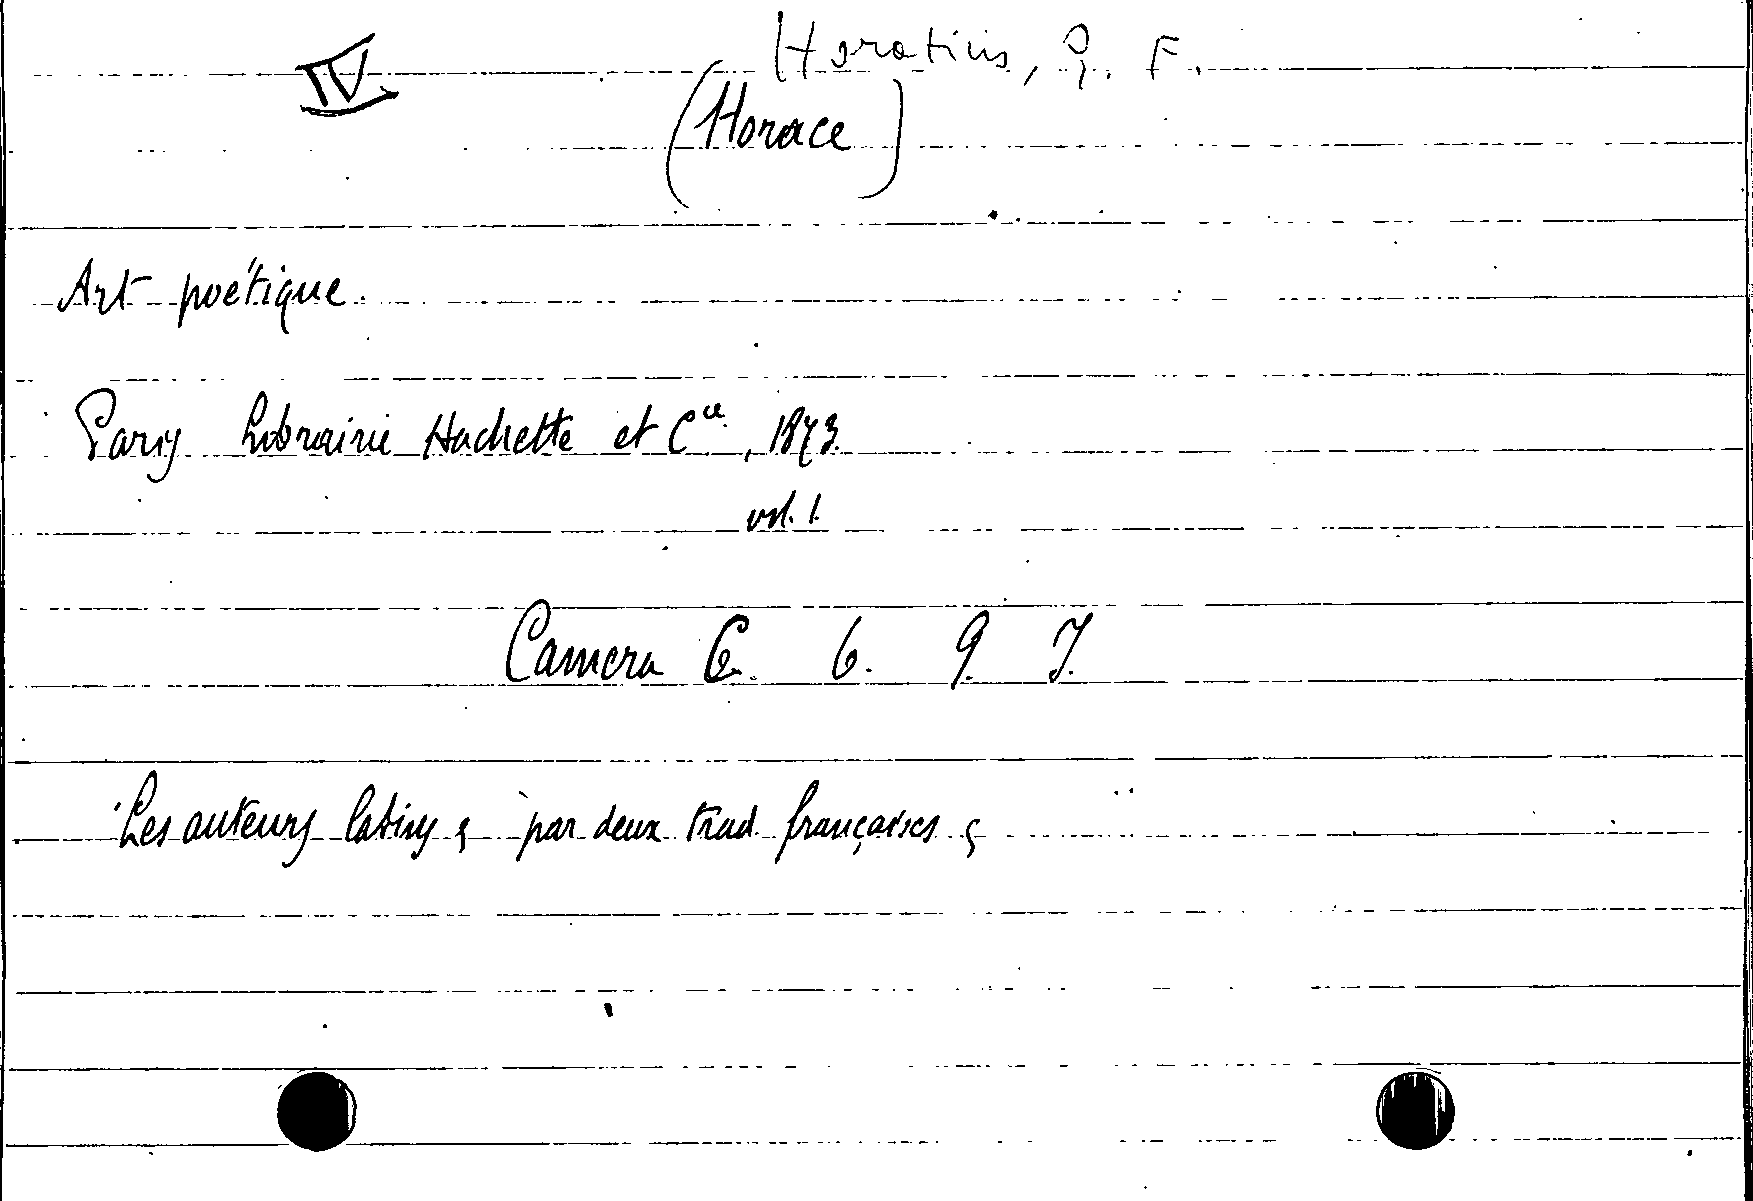 IV
Horatius, Q. F.
(Horace)
Art poétique.
Paris Librairie Hachette et Cie, 1873.
vol. 1.
Camera C. 6. 9. 7.
Les auteurs latins, par deux trad. françaises,